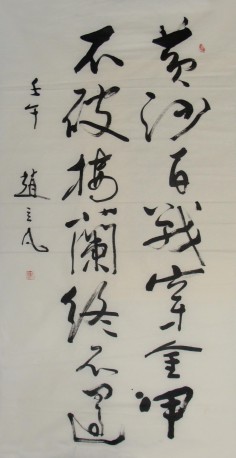 黄沙百戰穿金甲
不破樓蘭終不還
壬午 趙